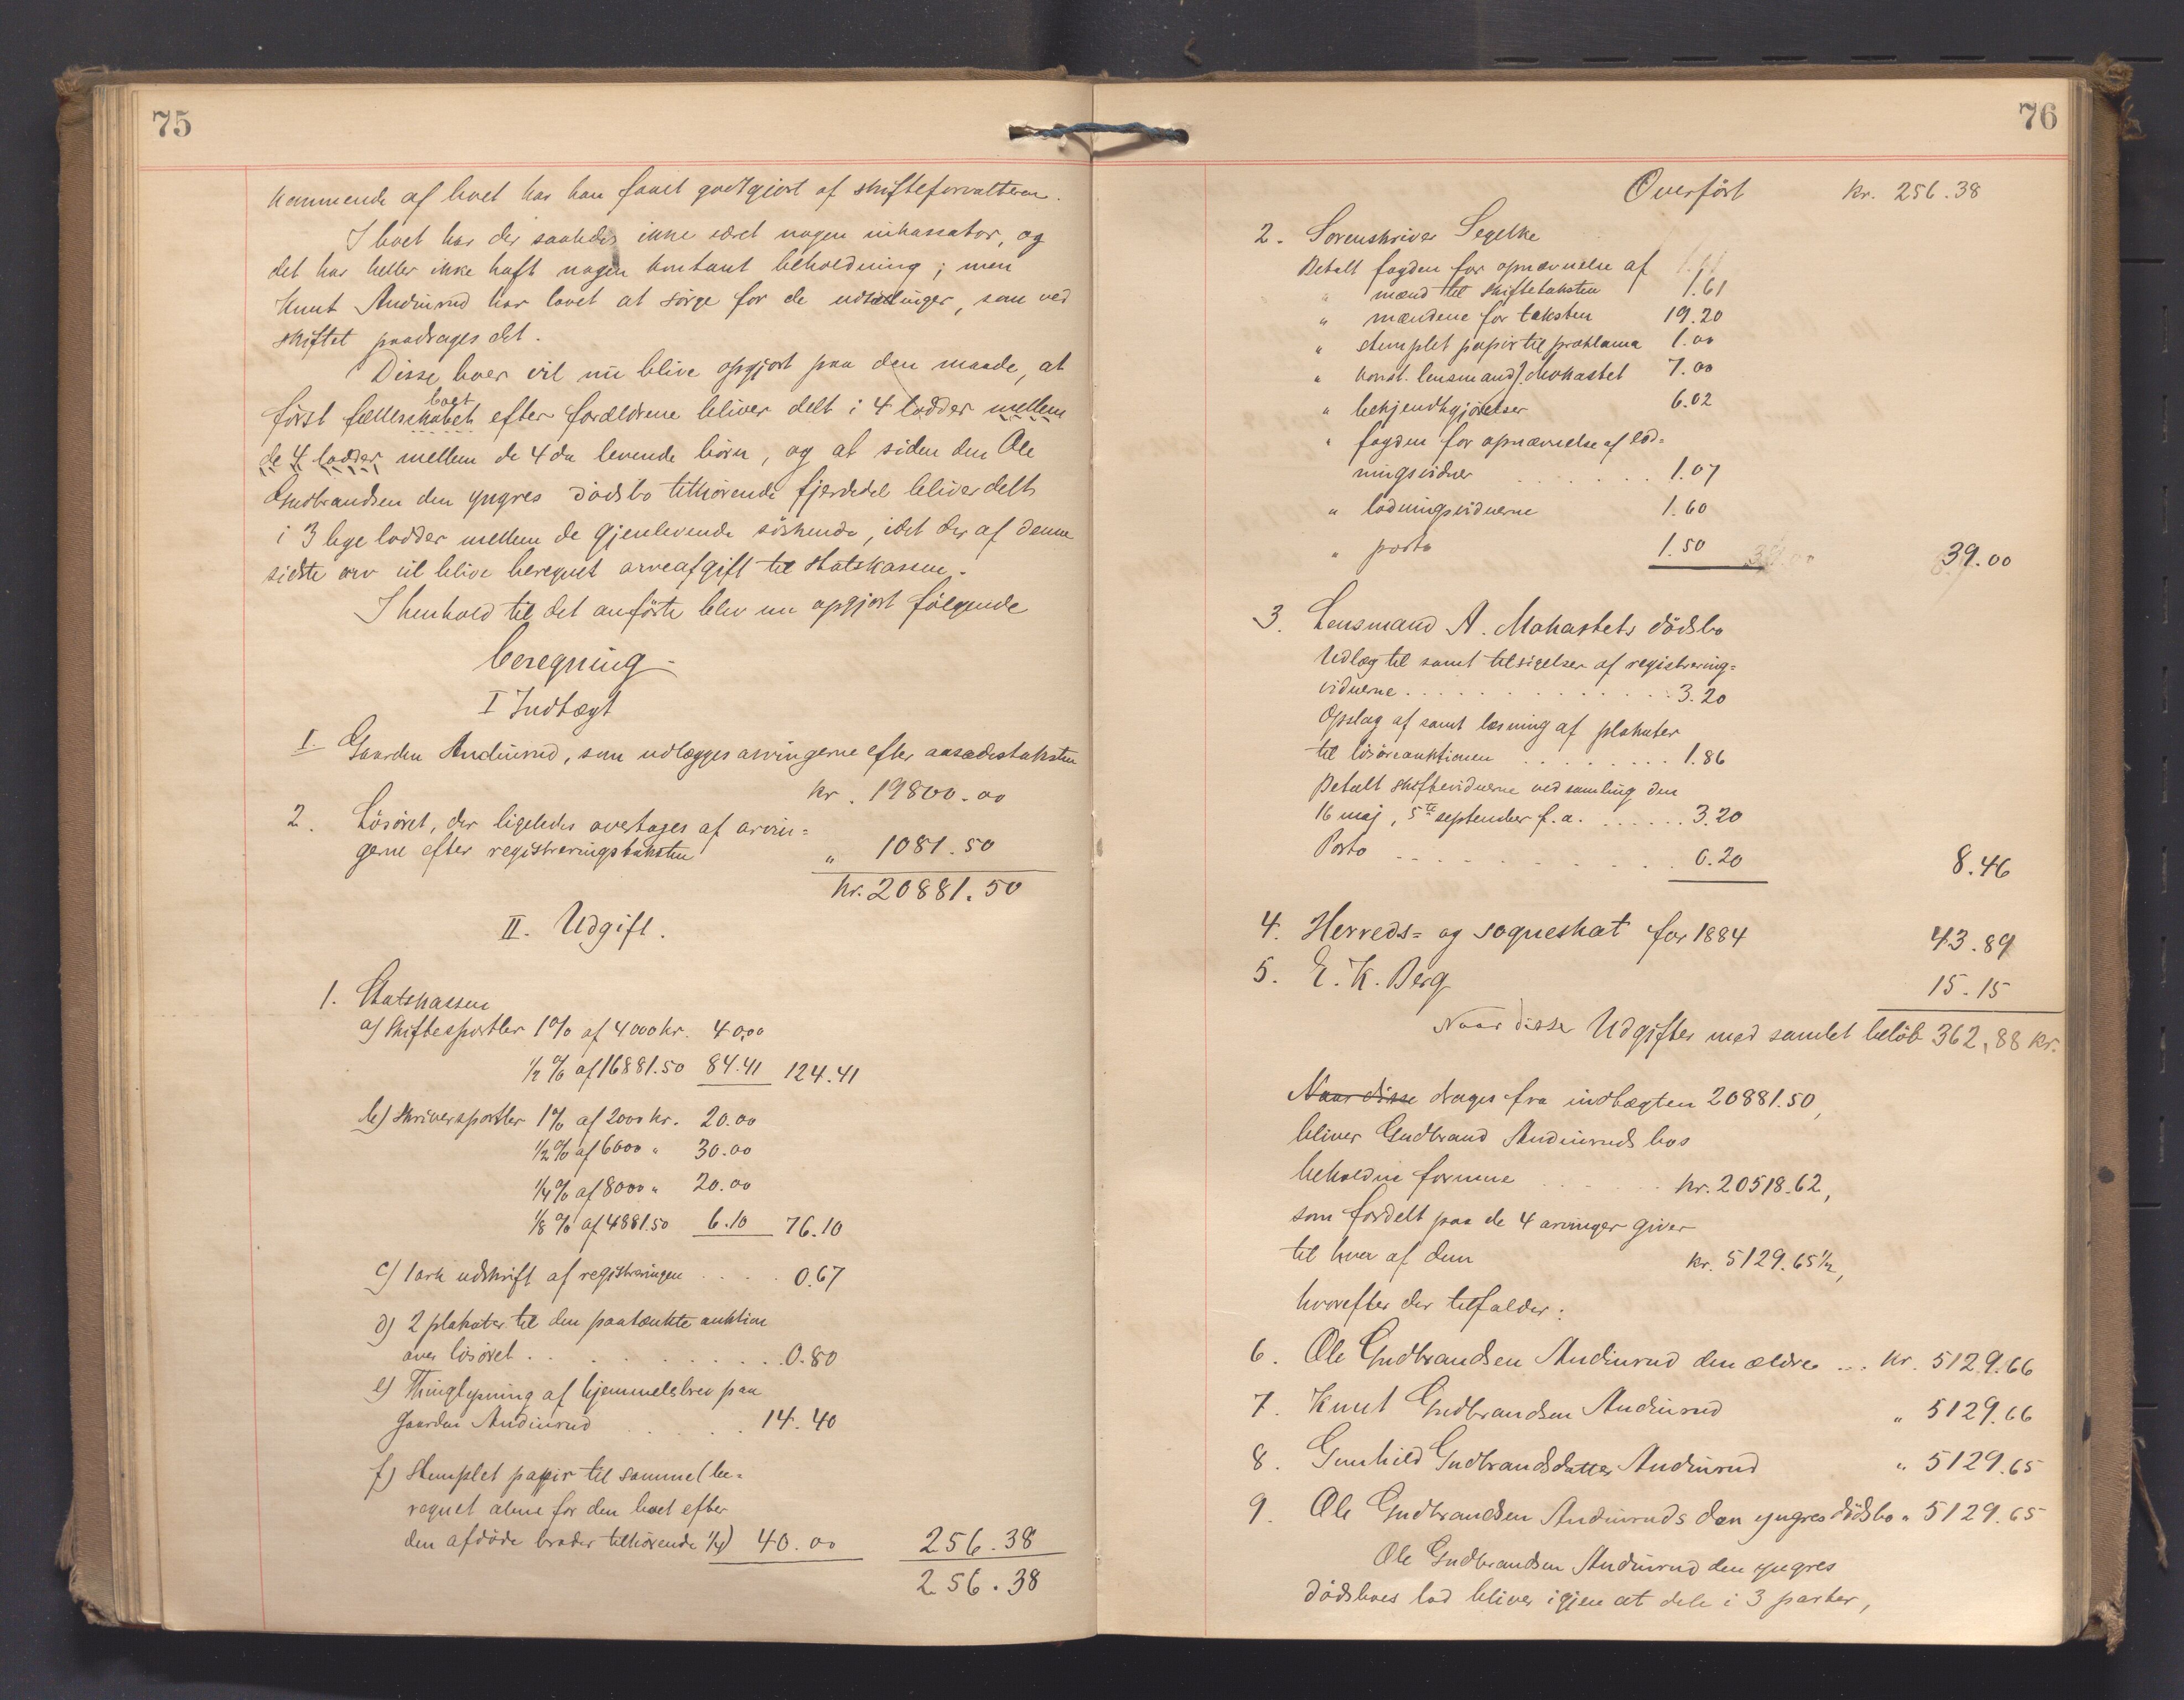 75
kommende af boet har han faaet godtgjort af skifteforvalteren.
I boet har der saaledes ikke været nogen inkassator, og
det har heller ikke haft nogen kontant beholdning; men
Knut Audinrud har lovet at sörge for de udtællinger, som ved
skiftet paadrages det.
Disse boer vil nu blive opgjort paa den maade, at
först fællesskabet boet efter forældrene bliver delt i 4 lodder mellem
de 4 lodder mellem de 4 da levende börn, og at siden den Ole
Gudbrandsen den yngres dödsbo tilhörende fjerdedel bliver delt
i 3 lige lodder mellem de gjenlevende söskende, idet der af denne
sidste arv vil blive beregnet arveafgift til Statskassen.
I henhold til det anförte blev nu opgjort fölgende
beregning
I Indtægt
1. Gaarden Audinrud, som udlægges arvingerne efter aasædestaksten
kr. 19800.00
2. Lösöret, der ligeledes overtages af arvin=
gerne efter registreringstaksten " 1081.50
kr. 20881.50
II. Udgift.
1. Statskassen
a) Skiftesportler 1% af 4000 kr. 40.00
½ % af 16881.50 84.41 124.41
b) Skriversportler 1% af 2000 kr. 20.00
½ % af 6000 " 30.00
¼ % af 8000 " 20.00
⅛ % af 4881.50 6.10 76.10
c) 1 ark udskrift af registreringen . . . . 0.67
d) 2 plakater til den paatænkte auktion
over lösöret . . . . . . . . . . 0.80
e) Thinglysning af hjemmelsbrev paa
gaarden Audinrud . . . . . 14.40
f) Stemplet papir til samme (be=
regnet alene for den boet efter
den afdöde broder tilhörende ¼) 40.00 256.38
256.38
76
Overfört kr. 256.38
2. Sorenskriver Segelke
Betalt fogden for opnævnelse af
" mænd til skiftetaksten 1.61
" mændene for taksten 19.20
" stemplet papir til proklama 1.00
" konst. lensmand J. Mokastet 7.00
" bekjendtgjörelser 6.02
" fogden for opnævnelse af lod=
ningsvidner . . . . . . . 1.07
" lodningsvidnerne 1.60
" porto 1.50 39.00
3. Lensmand A. Mokastets dödsbo
Udlæg til samt tilsigelser af registrering=
vidnerne . . . . . . . . . . . . 3.20
Opslag af samt læsning af plakater
til lösöreauktionen . . . . . . . . 1.86
Betalt skiftevidnerne ved samling den
16 maj, 5te september f.a. . . . . . . 3.20
Porto . . . . . . . . . . . . 0.20 8.46
4. Herreds= og sogneskat for 1884 43.89
5. E. K. Berg 15.15
Naar disse Udgifter med samlet belöb 362,88 kr.
Naar disse drages fra indtægten 20881.50,
bliver Gudbrand Audinruds bos
beholdne formue . . . . . . kr. 20518.62,
som fordelt paa de 4 arvinger giver
til hver af dem kr. 5129.65½,
hvorefter der tilfalder:
6. Ole Gudbrandsen Audinrud den ældre ... kr. 5129.66
7. Knut Gudbrandsen Audinrud " 5129.66
8. Gunhild Gudbrandsdatter Audinrud " 5129.65
9. Ole Gudbrandsen Audinruds den yngres dödsbo " 5129.65
Ole Gudbrandsen Audinrud den yngres
dödsboes lod bliver igjen at dele i 3 parter,